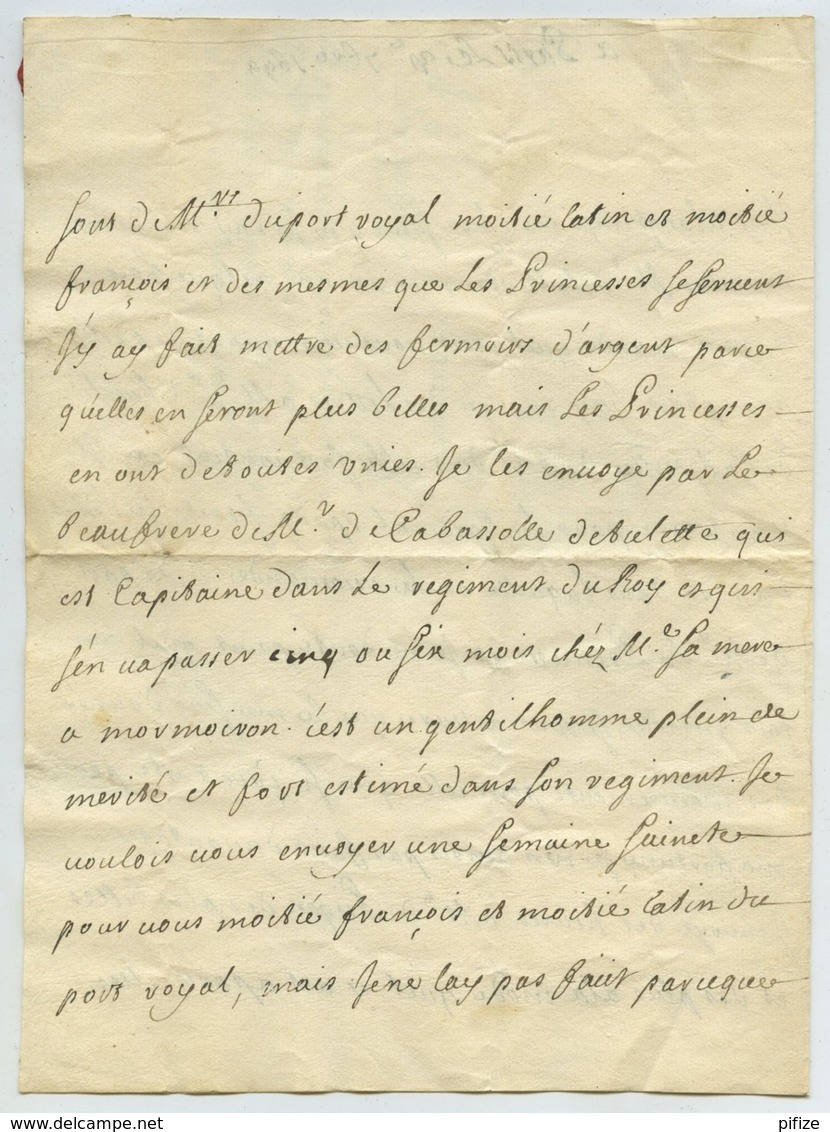 sont de Mrs duport royal moitié latin et moitié
françois et des mesmes que les Princesses se servent
J'y ay fait mettre des fermoirs d'argent parce
qu'elles en seront plus belles mais les Princesses
en ont de toutes unies. Je les envoye par le
beaufrere de Mr de Cabassolle detulette qui
est Capitaine dans le regiment du Roy et qui
s'en va passer cinq ou six mois chéz Me sa mere
a mormoiron. c'est un gentilhomme plein de
merité et fort estimé dans son regiment. Je
voulois vous envoyer une semaine saincte
pour vous moitié françois et moitié latin du
port royal, mais Jene lay pas fait parceque
pifize